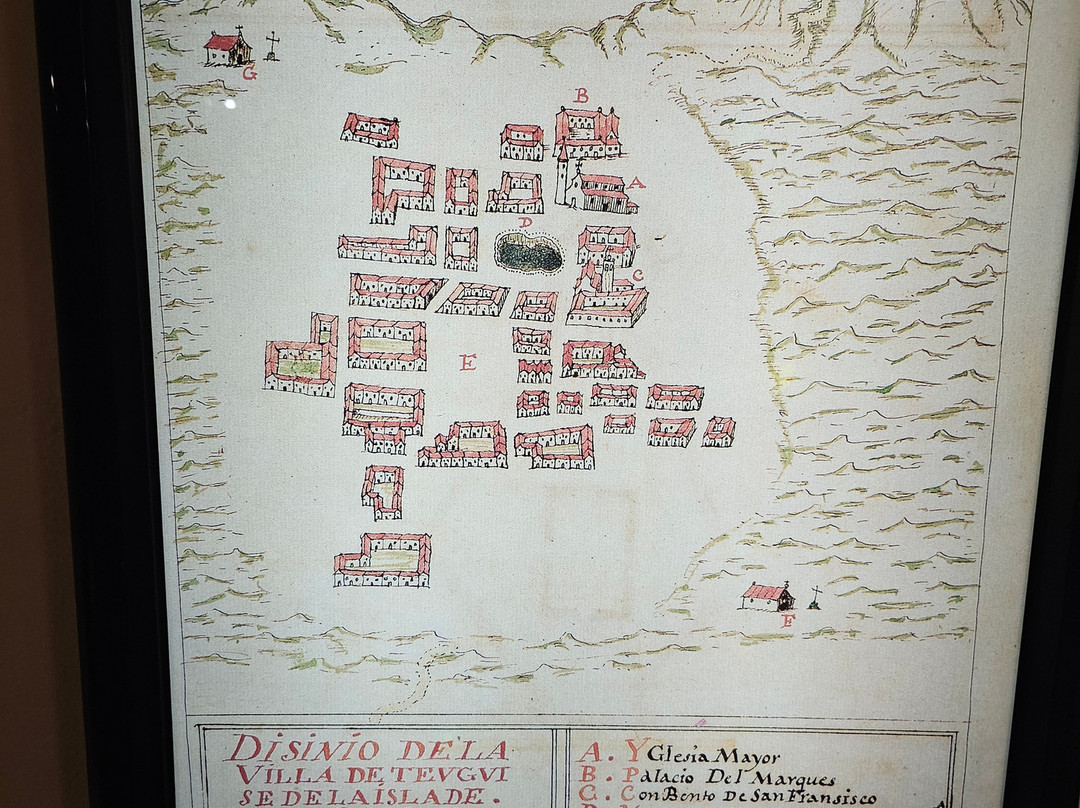 G
B
A
D
C
E
F
DISINIO DE LA
VILLA DE TEVGVI
SE DE LA ÍSLA DE .
A . YGlesia Mayor
B . Palacio Del Marques
C . ConBento De San Fransisco